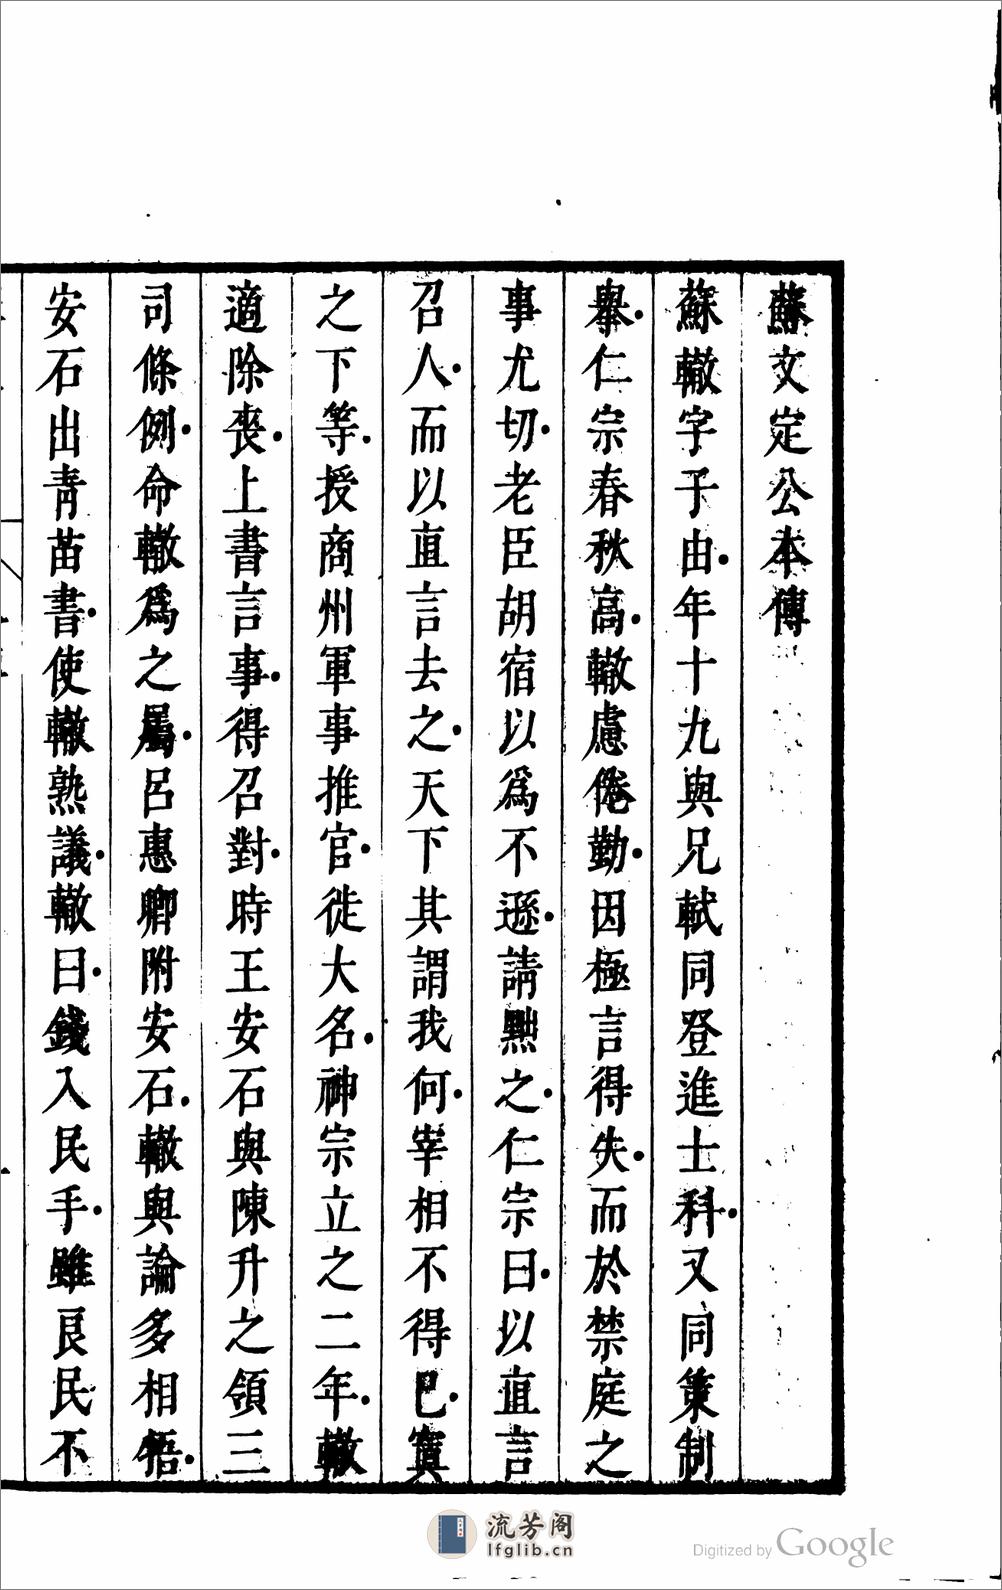 蘇文定公本傳
蘇轍字子由年十九與兄軾同登進士科又同策制
舉仁宗春秋高轍慮倦勤因極言得失而於禁庭之
事尤切老臣胡宿以爲不遜請黜之仁宗曰以直言
召人而以直言去之天下其謂我何宰相不得已寘
之下等授商州軍事推官徙大名神宗立之二年轍
適除喪上書言事得召對時王安石與陳升之領三
司條例命轍爲之屬呂惠卿附安石轍與論多相牾
安石出青苗書使轍熟議轍曰錢入民手雖良民不
流芳阁
lfglib.cn
Digitized by Google